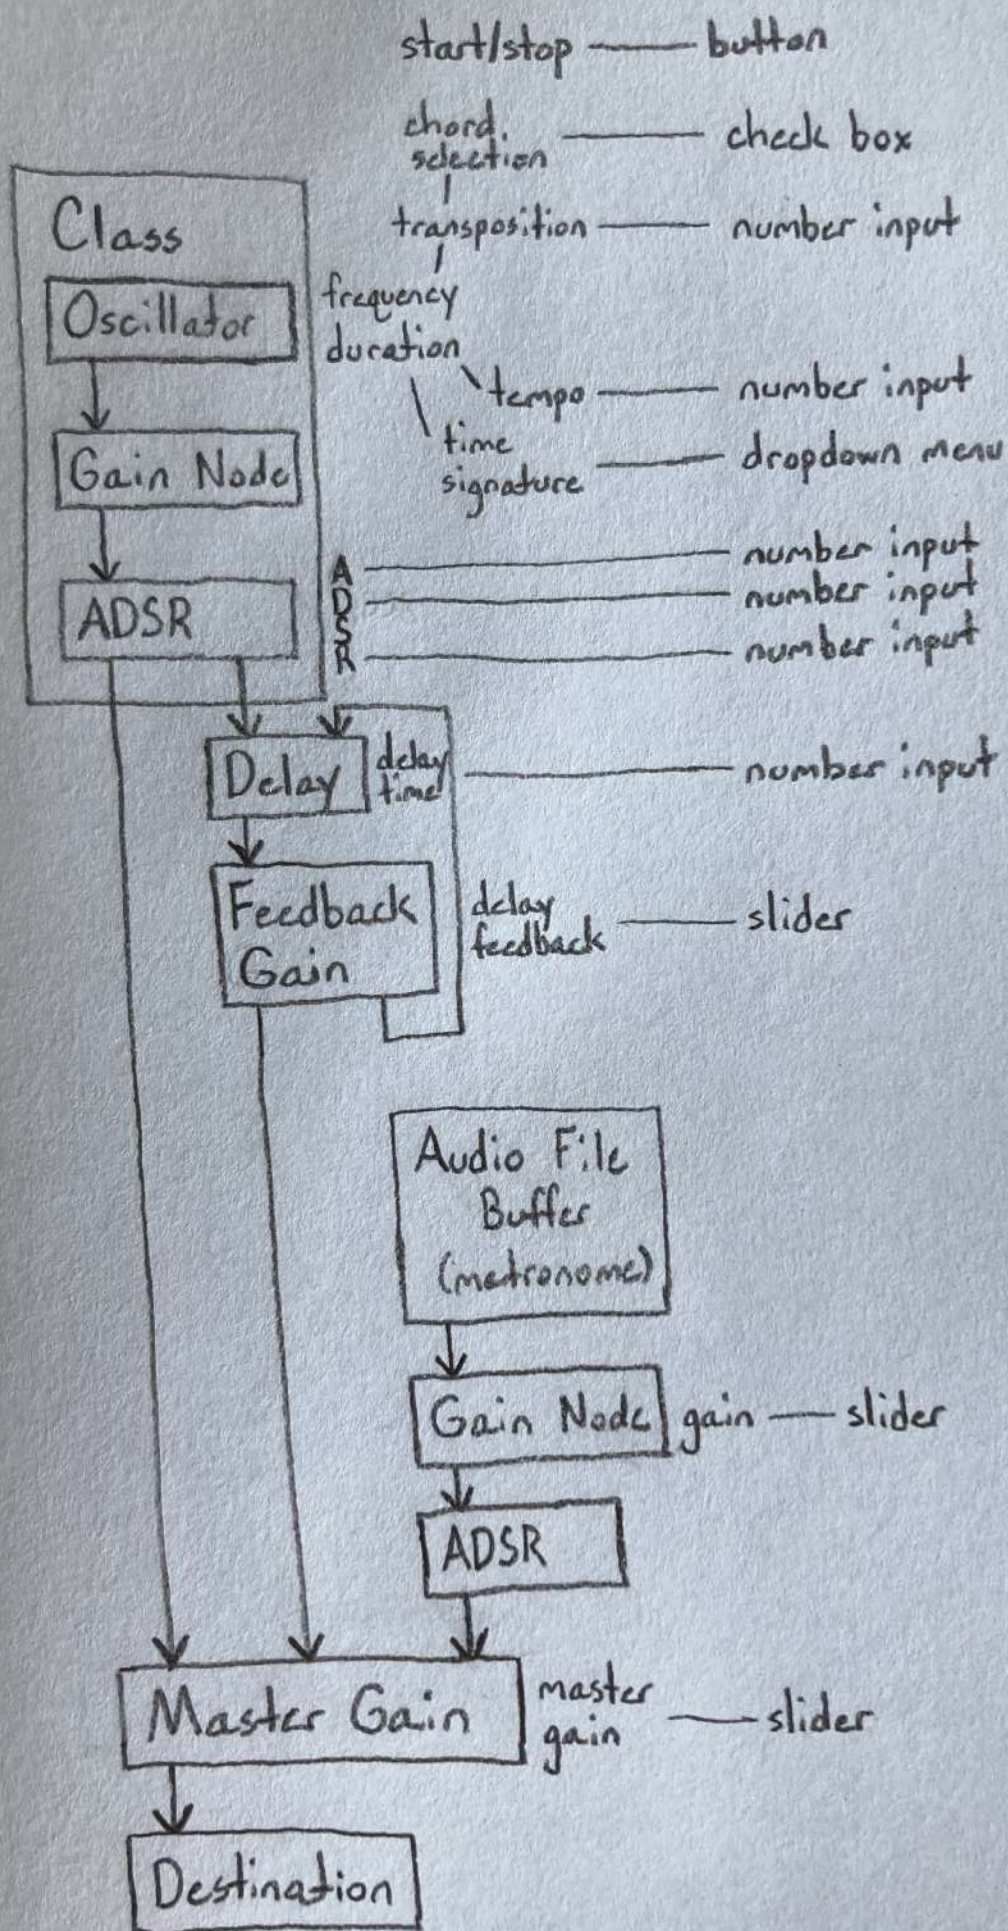 start/stop button
chord.
selection
check box
Class
transposition number input
Oscillator
frequency
duration
tempo number input
time
signature
dropdown menu
Gain Node
ADSR
A number input
D number input
S
R number input
Delay
delay
time
number input
Feedback
Gain
delay
feedback
slider
Audio File
Buffer
(metronome)
Gain Node gain slider
ADSR
Master Gain
master
gain
slider
Destination